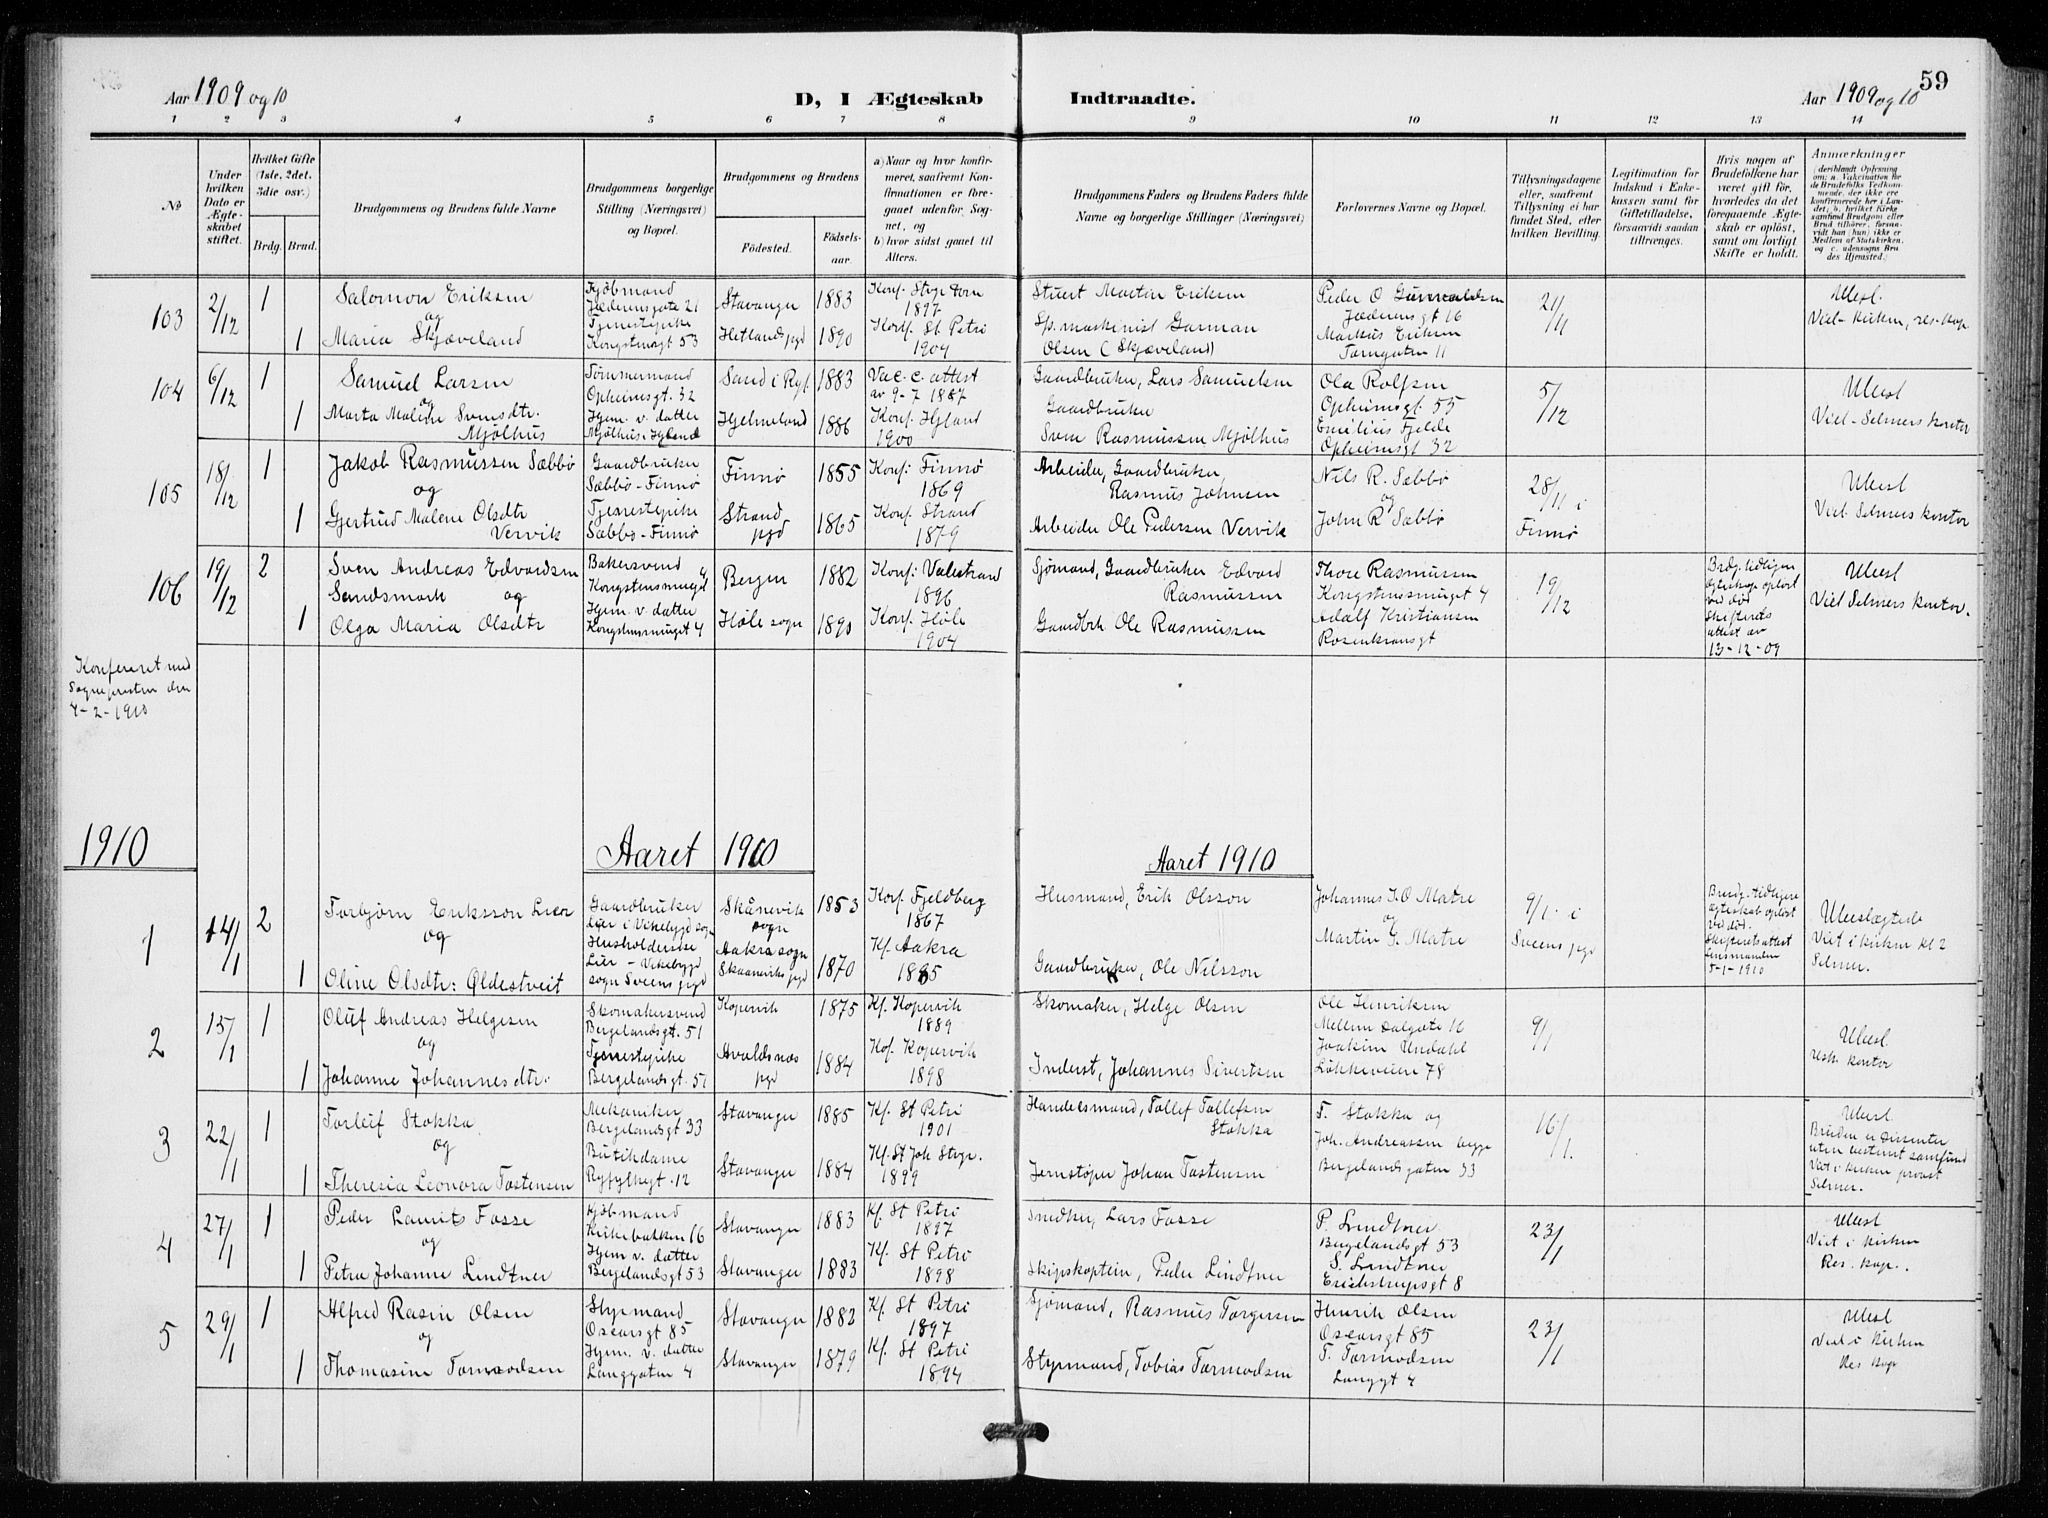 59
Aar 1909 og 10
D, I Ægteskab Indtraadte.
Aar 1909 og 10
1 2 3 4 5 6 7 8 9 10 11 12 13 14
No
Under hvilken Dato er Ægteskabet stiftet.
Hvilket Gifte (1ste, 2det, 3die osv.)
Brdg. Brud.
Brudgommens og Brudens fulde Navne
Brudgommens borgerlige Stilling (Næringsvei) og Bopæl.
Brudgommens og Brudens
Fødested. Fødselsaar.
a) Naar og hvor konfirmeret, saafremt Konfirmationen er foregaaet udenfor Sognet, og
b) hvor sidst gaaet til Alters.
Brudgommens Faders og Brudens Faders fulde Navne og borgerlige Stillinger (Næringsvei)
Forlovernes Navne og Bopæl.
Tillysningsdagene eller, saafremt Tillysning ei har fundet Sted, efter hvilken Bevilling.
Legitimation for Indskud i Enkekassen samt for Giftetilladelse, forsaavidt saadan tiltrænges.
Hvis nogen af Brudefolkene har været gift før, hvorledes da det foregaaende Ægteskab er opløst, samt om lovligt Skifte er holdt.
Anmærkninger (deriblandt Oplysning om: a. Vakcination for de Brudefolks Vedkommende, der ikke ere konfirmerede her i Landet; b. hvilket Kirkesamfund Brudgom eller Brud tilhører, forsaavidt han (hun) ikke er Medlem af Statskirken. og c. udensogns Brudes Hjemsted.)
103 2/12 1
Salomon Eriksen
og
1 Maria Skjæveland
Kjøbmand
Jæderensgate 21
Tjenestepike
Kongstensgt 53
Stavanger 1883
Hetlands pgd 1890
Konf. Stvgr Dom
1897
Konf. St. Petri
1904
Stuert Martin Eriksen
Sp. maskinist Garman
Olsen (Skjæveland)
Peder O Gunvaldsen
Jæderensgt 16
Markus Eriksen
Tarngaten 11
21/11
Ubesl.
Viel- Kirken, res. kap.
104 6/12 1
Samuel Larsen
og
1 Marta Malene Svensdtr.
Mjølhus
Tømmermand
Opheimsgt. 32
Hjem. v. datter
Mjølhus i Hyland
Sand i Ryf. 1883
Hjelmeland 1886
Vac. c. attest
av 9-7 1887
Konf. Hyland
1900
Gaardbruker, Lars Samuelsen
Gaardbruker
Sven Rasmussen Mjølhus
Ola Rolfsen
Opheimsgt. 55
Emilius Fjelde
Opheimsgt 32
5/12
Ubesl
Viel- Selmers kontor
105 18/12 1
Jakob Rasmussen Sæbbø
og
1 Gjertrud Malene Olsdtr
Vervik
Gaardbruker
Sæbbø - Finnø
Tjenestepike
Sæbbø - Finnø
Finnø 1855
Strand pgd 1865
Konf: Finnø
1869
Konf. Strand
1879
Arbeider, Gaardbruker,
Rasmus Johnsen
Arbeider Ole Pedersen Vervik
Nils R. Sæbbø
og
John R Sæbbø
28/11 i
Finnø
Ubesl
Viel Selmers kontor
106 19/12 2
Sven Andreas Edvardsen
Sandsmark og
1 Olga Maria Olsdtr
Bakersvend
Kongstensmuget 4
Hjem. v. datter
Kongstensmuget 4
Bergen 1882
Høle sogn 1890
Konf: Valestrand
1896
Konf. Høle
1904
Sjømand, Gaardbruker Edvard
Rasmussen
Gaardbrk Ole Rasmussen
Thore Rasmussen
Kongstensmuget 4
Adolf Kristiansen
Rosenkransgt
19/12
Brdg. tidligere
egteskap opløst
ved død
Skifterets
attest av
13-12-09
Ubesl
Viel Selmers kontor.
Konfereret med
Sognepresten den
4-2-1910
1910
Aaret 1910
Aaret 1910
1 14/1 2
Torbjørn Eriksson Lier
og
1 Oline Olsdtr: Øldestveit
Gaardbruker
Lier i Vikebygd sogn
Husholderske
Lier - Vikebygd
sogn Sveens pgd
Skånevik sogn 1853
Aakra sogn
Skaanevik pgd 1870
Konf. Fjeldberg
1867
Kf. Aakra
1885
Husmand, Erik Olsson
Gaardbruker, Ole Nilsson
Johannes J. O Matre
og
Martin J. Matre
9/1. i
Sveens pgd
Brudg. tidligere
ægteskab opløst
ved død.
Skifteretsattest
Lensmanden
5-1-1910
Ubeslægtede
Viet i kirken kl 2
Selmer.
2 15/1 1
Oluf Andreas Helgesen
og
1 Johanne Johannesdtr.
Skomakersvend
Bergelandsgt. 51
Tjenestepike
Bergelandsgt. 51
Kopervik 1875
Avaldsnes pgd 1884
Kf. Kopervik
1889
Kof. Kopervik
1898
Skomaker, Helge Olsen
Inderst, Johannes Sivertsen
Ole Henriksen
Mellem Dalgate 16
Joakim Undahl
Løkkeveien 78
9/1
Ubesl
resk. kontor
3 22/1 1
Torleif Stokka
og
1 Theresia Leonora Tostensen
Mekaniker
Bergelandsgt 33
Butikdame
Ryfylkegt. 12
Stavanger 1885
Stavanger 1884
Kf. St Petri
1901
Kf. St Joh Stvgr.
1899
Handelsmand, Tollef Tollefsen
Stokka
Jernstøper Johan Tostensen
T. Stokka og
Joh. Andreassen begge
Bergelandsgaten 33
16/1.
Ubesl.
Bruden er Dissenter
uten bestemt samfund
Viet i kirken provst
Selmer.
4 27/1 1
Peder Laurits Fosse
og
1 Petra Johanne Lindtner
Kjøbmand
Kirkebakken 16
Hjem v. datter
Bergelandsgt 53
Stavanger 1883
Stavanger 1883
Kf. St Petri
1897
Kf. St Petri
1898
Snedker, Lars Fosse
Skipskaptein, Peder Lindtner
P. Lindtner
Bergelandsgt 53
S. Lindtner
Erichstrupsgt 8
23/1
Ubesl
Viet i kirken
Res. kap.
5 29/1 1
Alfred Rasin Olsen
og
1 Thomasine Tormodsen
Styrmand
Oscarsgt 85
Hjem. v. datter
Langgaten 4
Stavanger 1882
Stavanger 1879
Kf. St Petri
1897
Kf. St Petri
1894
Sjømand, Rasmus Torgersen
Styrmand, Tobias Tormodsen
Henrik Olsen
Oscarsgt 85
T. Tormodsen
Langgt 4
23/1
Ubesl
Viel i kirken
Res kap